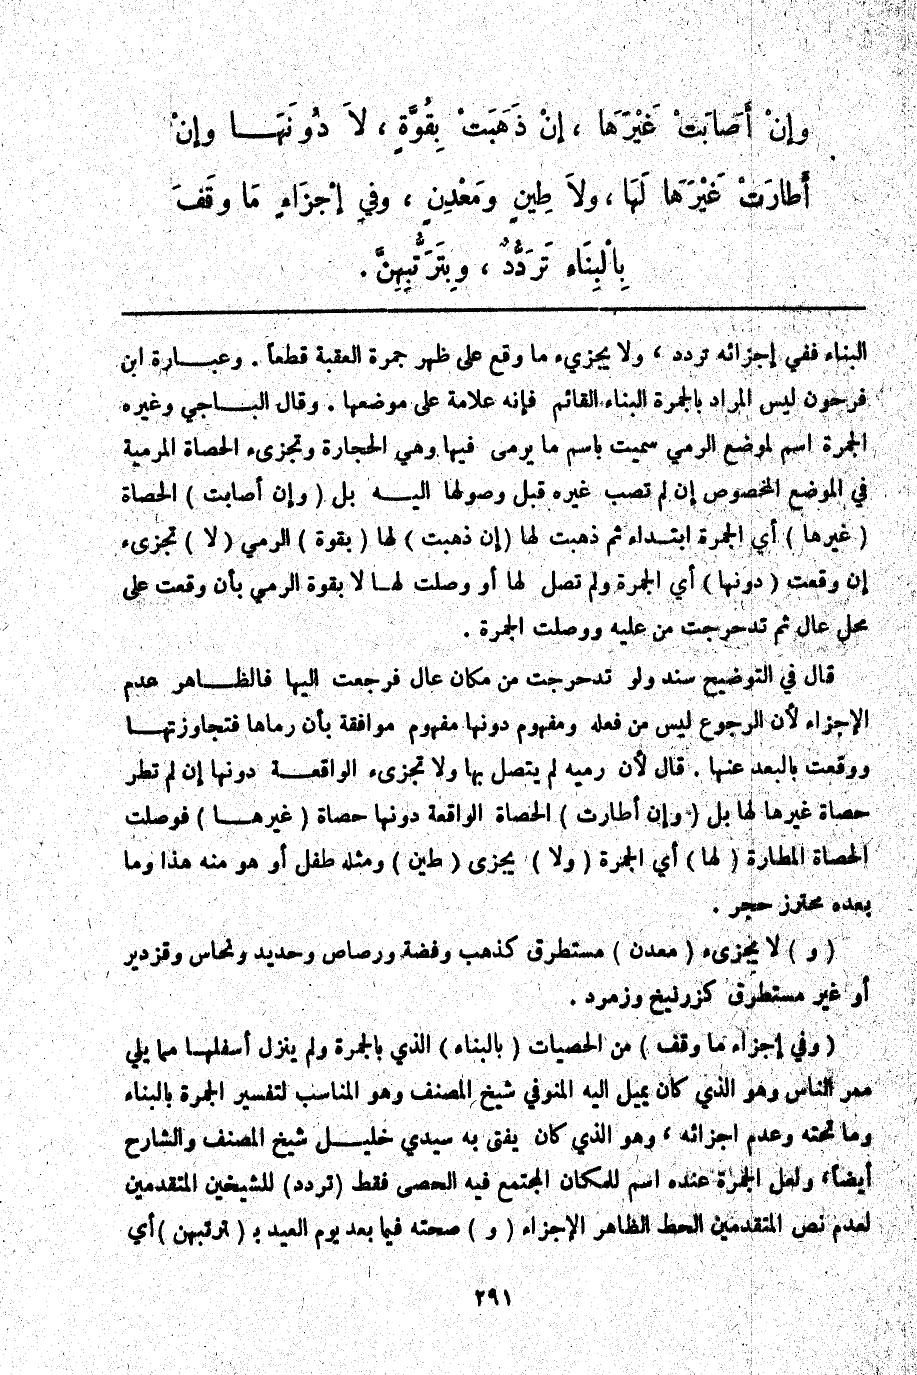 وإِنْ أَصَابَتْ غَيْرَها ، إِنْ ذَهَبَتْ بِقُوَّةٍ ، لاَ دُونَهَـــا وإِنْ
أَطارَتْ غَيْرَها لَهَا ، ولاَ طِينٍ ومَعْدِنٍ ، وفي إِجْزَاءِ مَا وقَفَ
بِالْبِنَاءِ تَرَدُّدٌ ، وبِتَرَتُّبِهِنَّ .
البناء ففي إجزائه تردد ، ولا يجزيء ما وقع على ظهر جمرة العقبة قطعاً . وعبـــارة ابن
فرحون ليس المراد بالجمرة البناء القائم فإنه علامة على موضعها . وقال البـــاجي وغيره
الجمرة اسم لموضع الرمي سميت باسم ما يرمى فيها وهي الحجارة وتجزىء الحصاة المرمية
في الموضع المخصوص إن لم تصب غيره قبل وصولها اليـــه بل ( وإن أصابت ) الحصاة
( غيرها ) أي الجمرة ابتـــداء ثم ذهبت لها ( إن ذهبت ) لها ( بقوة ) الرمي ( لا ) تجزىء
إن وقعت ( دونها ) أي الجمرة ولم تصل لها أو وصلت لهـــا لا بقوة الرمي بأن وقعت على
محل عال ثم تدحرجت من عليه ووصلت الجمرة .
قال في التوضيح سند ولو تدحرجت من مكان عال فرجعت اليها فالظـــاهر عدم
الإجزاء لأن الرجوع ليس من فعله ومفهوم دونها مفهوم موافقة بأن رماها فتجاوزتهـــا
ووقعت بالبعد عنها . قال لأن رميه لم يتصل بها ولا تجزىء الواقعـــة دونها إن لم تطر
حصاة غيرها لها بل ( وإن أطارت ) الحصاة الواقعة دونها حصاة ( غيرهـــا ) فوصلت
الحصاة المطارة ( لها ) أي الجمرة ( ولا ) يجزى ( طين ) ومثله طفل أو هو منه هذا وما
بعده محترز حجر .
( و ) لا يجزىء ( معدن ) مستطرق كذهب وفضة ورصاص وحديد ونحاس وقزدير
أو غير مستطرق كزرنيخ وزمرد .
( وفي إجزاء ما وقف ) من الحصيات ( بالبناء ) الذي بالجمرة ولم ينزل أسفلهـــا مما يلي
ممر الناس وهو الذي كان يميل اليه المنوفي شيخ المصنف وهو المناسب لتفسير الجمرة بالبناء
وما تحته وعدم اجزائه ، وهو الذي كان يفتى به سيدي خليـــل شيخ المصنف والشارح
أيضاً ، ولعل الجمرة عنده اسم للمكان المجتمع فيه الحصى فقط (تردد) للشيخين المتقدمين
لعدم نص المتقدمين الحط الظاهر الإجزاء ( و ) صحته فيما بعد يوم العيد بـ ( ترتبهن ) أي
٢٩١